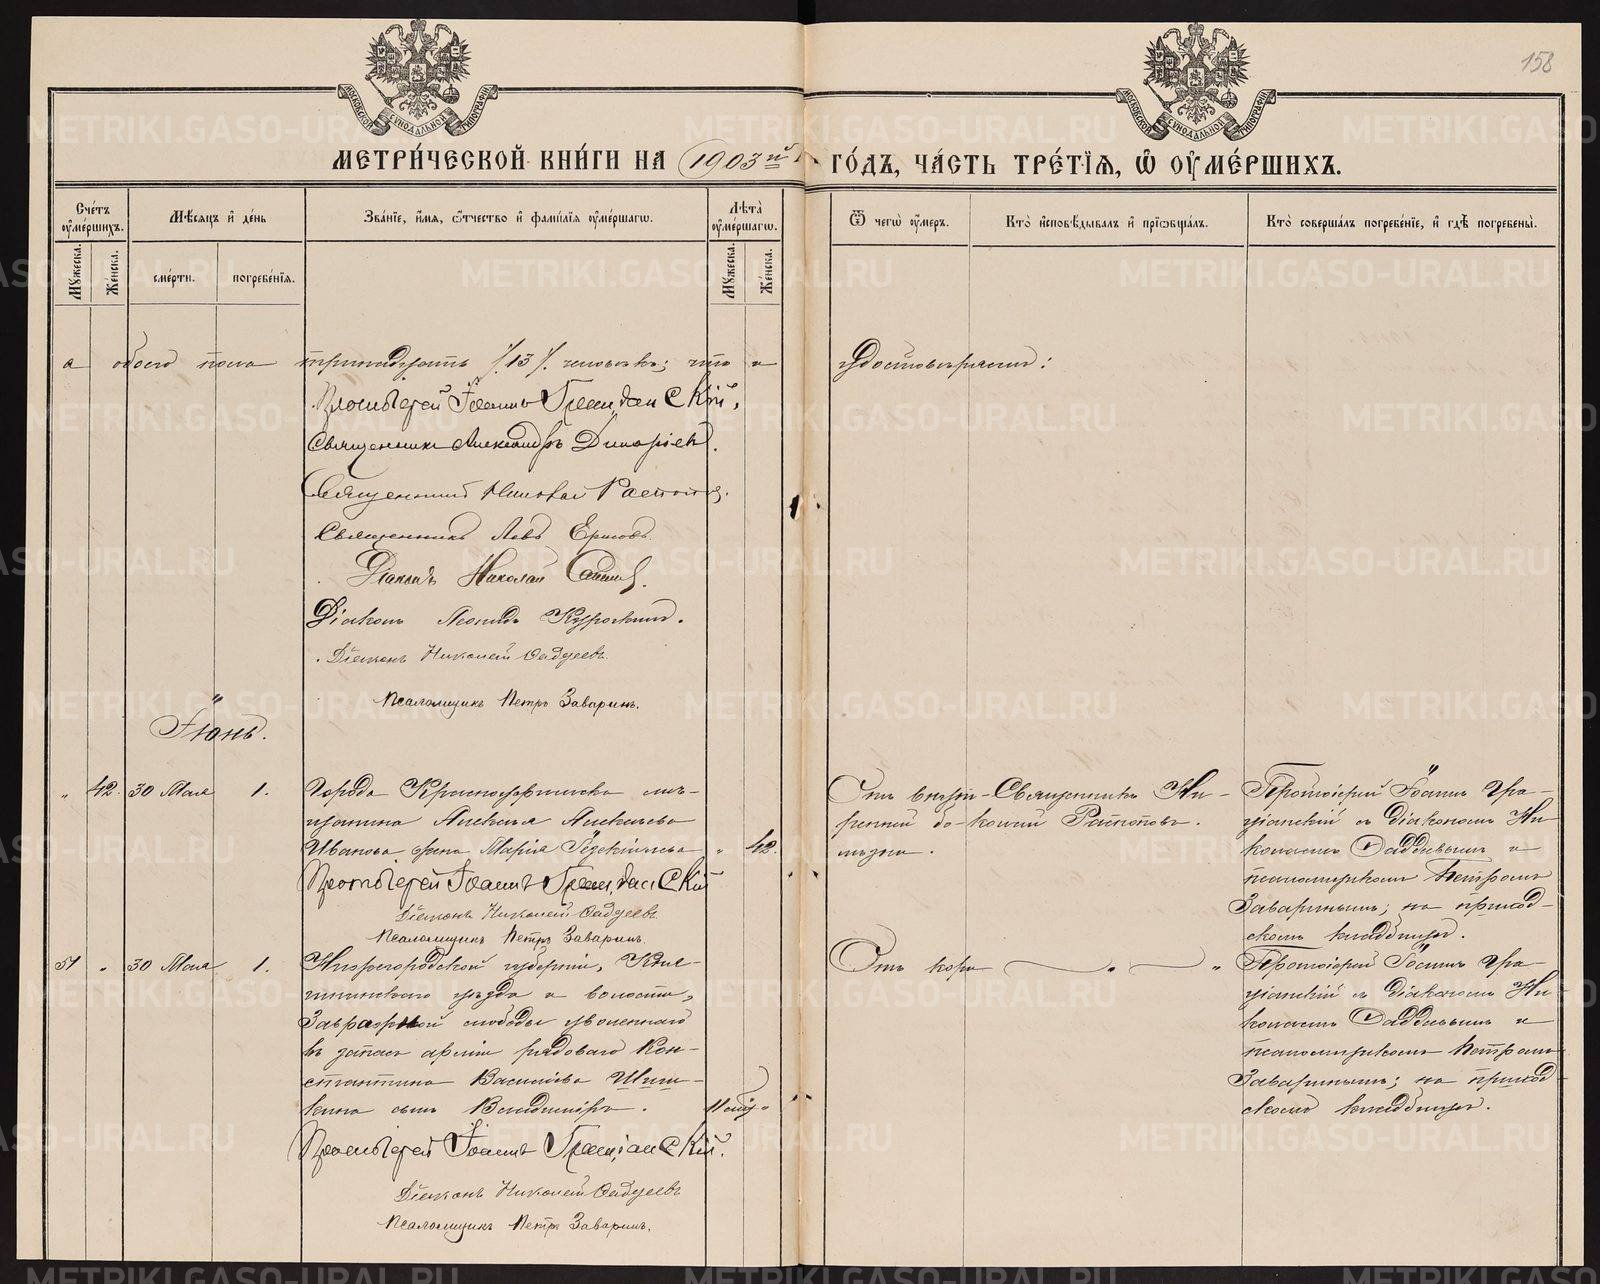 158
МОСКОВСКОЙ СѴНОДАЛЬНОЙ ТИПОГРАФІИ
МОСКОВСКОЙ СѴНОДАЛЬНОЙ ТИПОГРАФІИ
МЕТРИ́ЧЕСКОЙ КНИ́ГИ НА 1903й ГО́ДЪ, ЧА́СТЬ ТРЕ́ТІѦ, Ѿ ОУМЕ́РШИХЪ.
Сче́тъ оумершихъ.
Мужеска.
Же́нска.
Мѣсѧцъ и де́нь
сме́рти.
погребе́нїѧ.
Зва́нїе, и́мѧ, ѻтчество и фами́лїѧ оуме́ршагѡ.
Лѣта̀ оуме́ршагѡ.
Мужеска.
Же́нска.
Ѿ чегѡ̀ оу́меръ.
Кто̀ исповѣ́дывалъ и прїѡбща́лъ.
Кто̀ соверша́лъ погребе́нїе, и гдѣ̀ погребены̀.
а обоего пола тринадцать /.13/. человѣкъ; что и удостовѣряемъ:
Протоіерей Іоаннъ Граціанскій,
Священникъ Александръ
Священникъ Николай Рапоповъ.
Священникъ Левъ Ершовъ.
Діаконъ Николай
Діаконъ Леонидъ
Діаконъ Николай Фаддеевъ.
Псаломщикъ Петръ Заваринъ.
Іюнь.
" 42. 30 Мая 1.
Города Красноуфимска мѣ-
щанина Алексѣя Алексѣева
Иванова жена Марія Іезекіилева " 42.
Протоіерей Іоаннъ Граціанскій
Діаконъ Николай Фаддеевъ
Псаломщикъ Петръ Заваринъ.
Отъ внутр-
ренней бо-
лѣзни.
Священникъ Ни-
колай Рапоповъ.
Протоіерей Іоаннъ Гра-
ціанскій съ діакономъ Ни
колаемъ Фаддеевымъ и
псаломщикомъ Петромъ
Заваринымъ; на приход-
скомъ кладбищѣ.
51 " 30 Мая 1.
Нижегородской губерніи, Княг-
нинскаго уѣзда и волости,
слободы уволеннаго
въ запасъ арміи рядоваго Кон-
стантина Васильева Шиш-
кина сынъ Владиміръ.
Протоіерей Іоаннъ Граціанскій.
Діаконъ Николай Фаддеевъ
Псаломщикъ Петръ Заваринъ.
Отъ кори
Протоіерей Іоаннъ Гра-
ціанскій съ діакономъ Ни
колаемъ Фаддеевымъ и
псаломщикомъ Петромъ
Заваринымъ; на приход
скомъ кладбищѣ.
METRIKI.GASO-URAL.RU